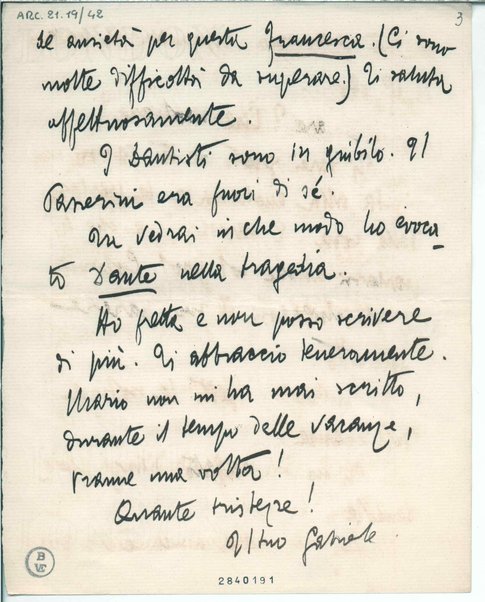 ARC. 21.19/42
3
de ansietà per questa Francesca. (Ci sono
molte difficoltà da superare.) Ti saluta
affettuosamente.
I Dantisti sono in giubilo. Il
Passerini era fuori di sé.
Tu vedrai in che modo ho evoca-
to Dante nella tragedia.
Ho fretta e non posso scrivere
di più. Ti abbraccio teneramente.
Mario non mi ha mai scritto,
durante il tempo delle vacanze,
tranne una volta!
Quante tristezze!
Il tuo Gabriele
B
VE
2840191